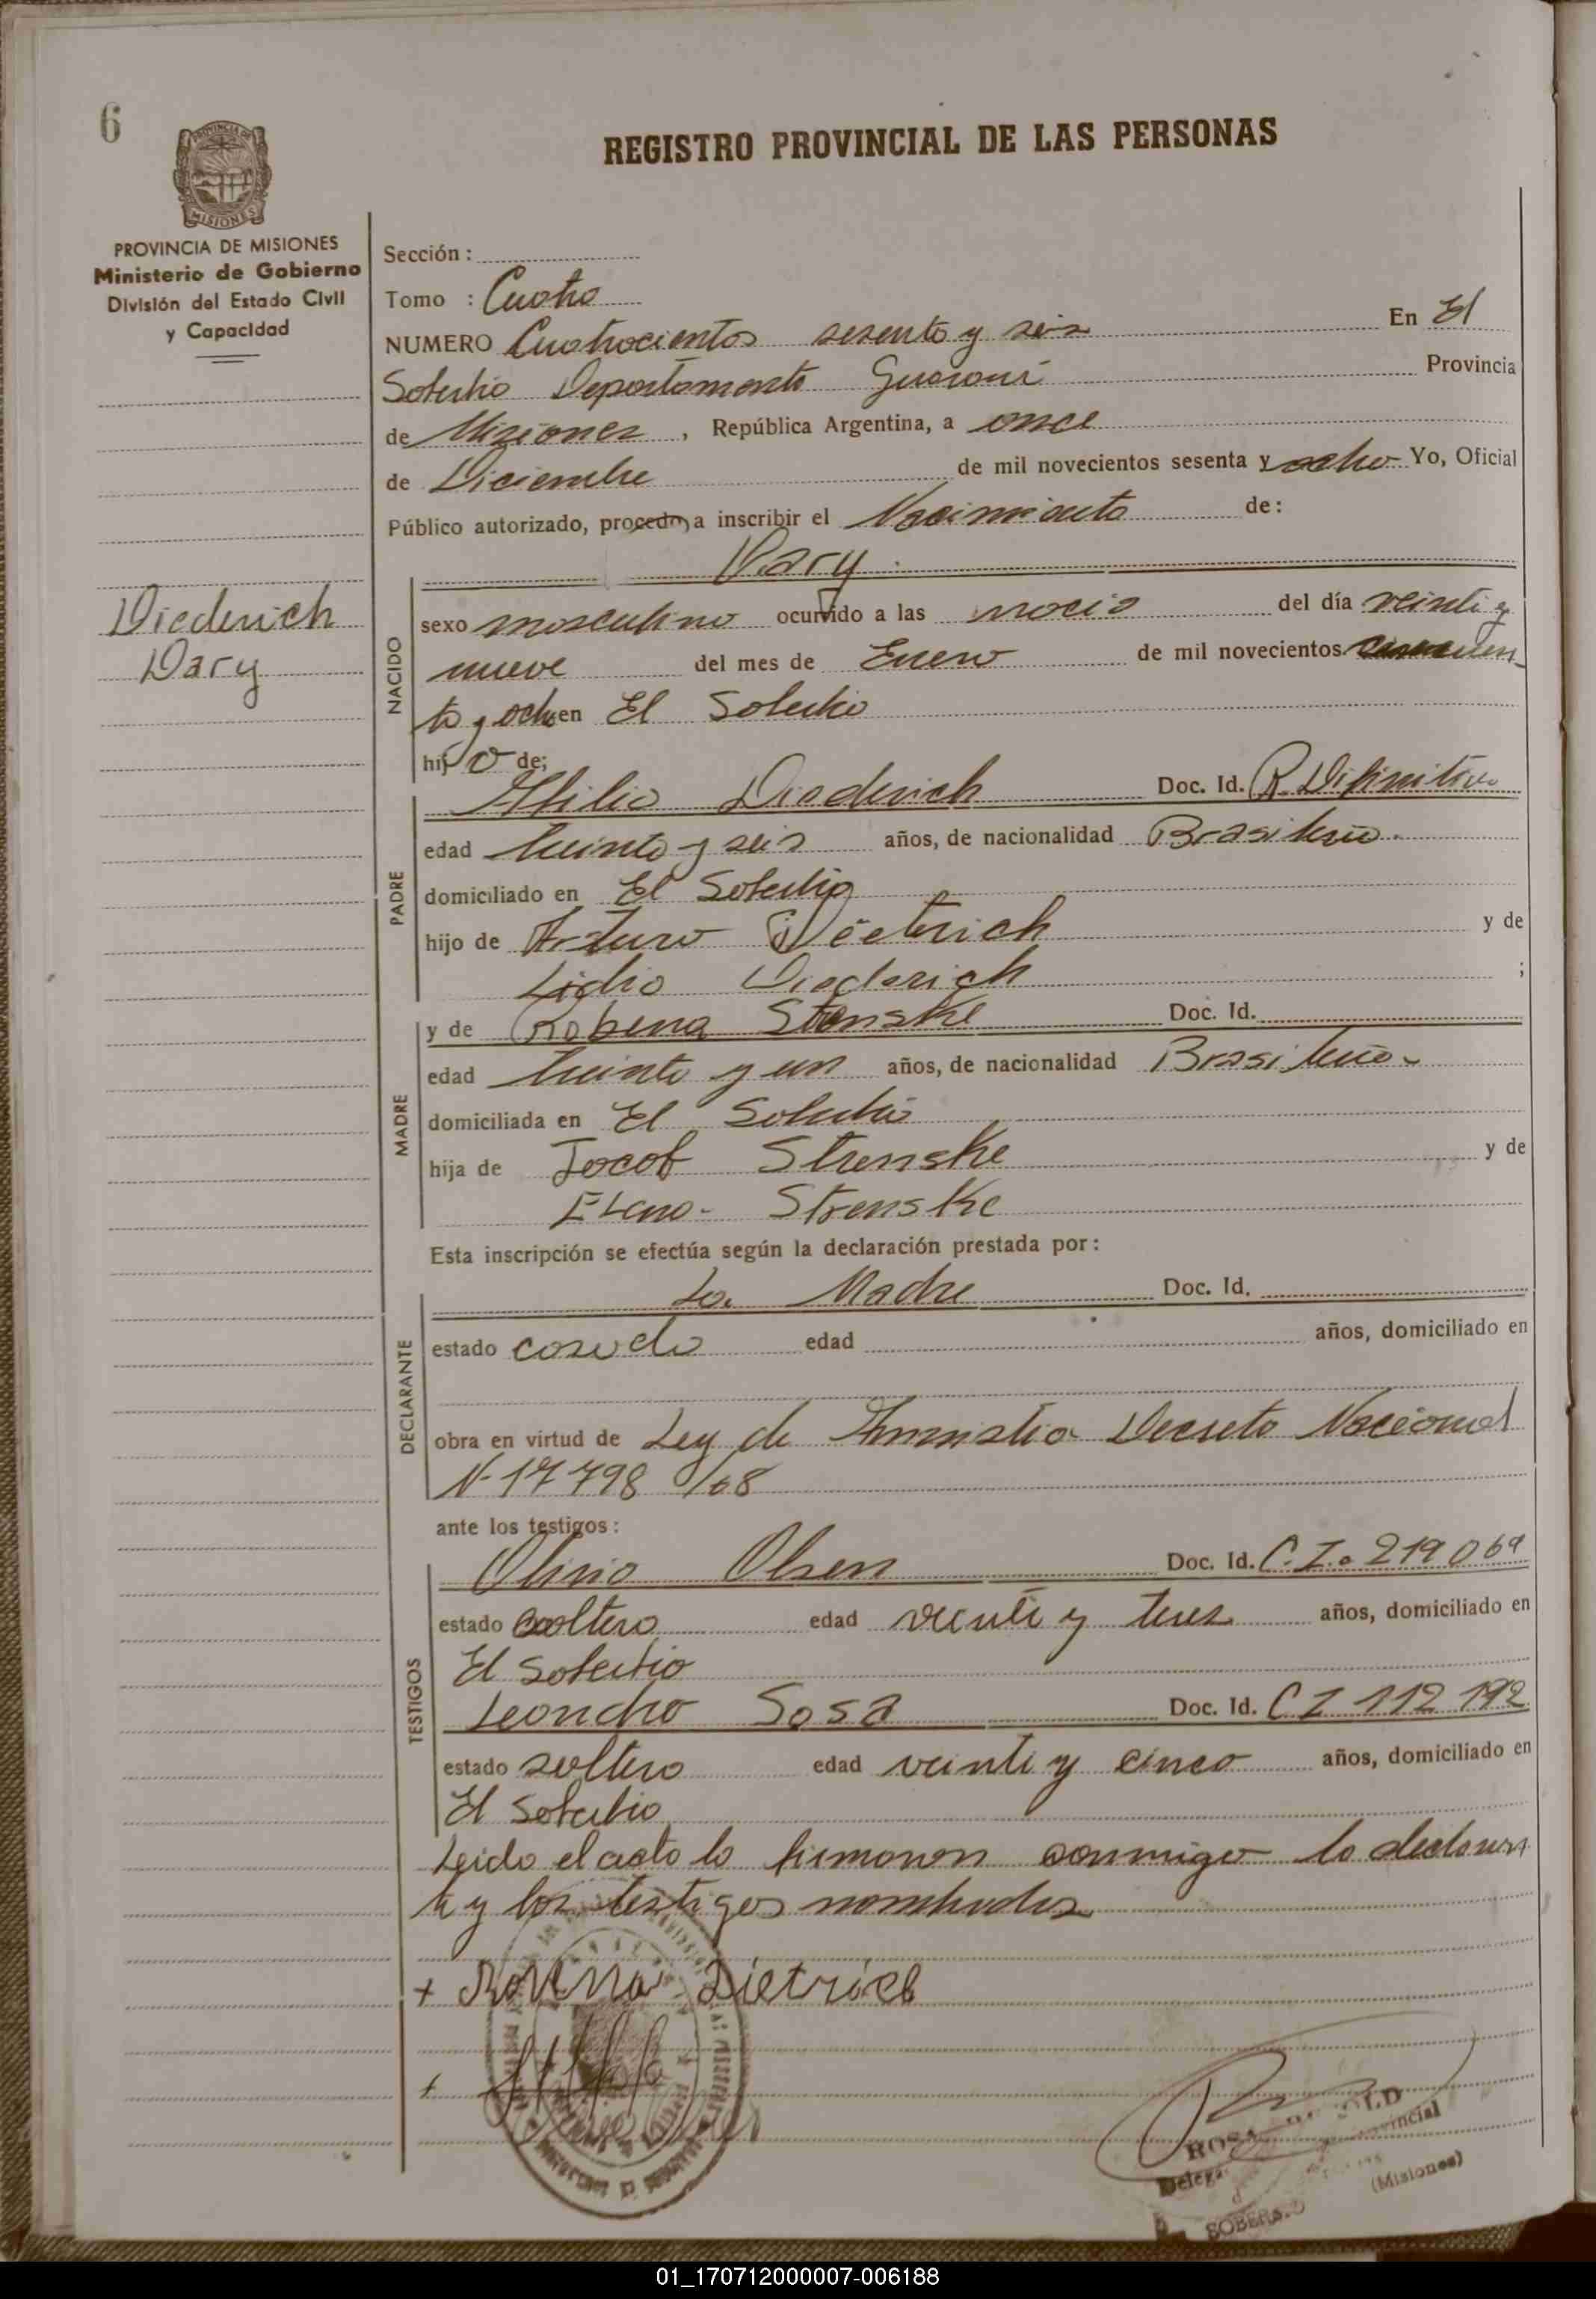 6
REGISTRO PROVINCIAL DE LAS PERSONAS
MISIONES
PROVINCIA DE MISIONES
Ministerio de Gobierno
División del Estado Civil
y Capacidad
Sección :
Tomo : Cuatro
NUMERO Cuatrocientos sesenta y seis En El
Soberbio Departamento Guaraní Provincia
de Misiones , República Argentina, a once
de Diciembre de mil novecientos sesenta y ocho Yo, Oficial
Público autorizado, procedo a inscribir el Nacimiento de:
Diederich
Dary
Dary
NACIDO
sexo masculino ocurrido a las del día veinti y
nueve del mes de Enero de mil novecientos cincuen
ta y ocho en El Soberbio
hijo de;
PADRE
Atilio Diederich Doc. Id. R. Difinitiva
edad treinta y seis años, de nacionalidad Brasilero
domiciliado en El Soberbio
hijo de Arturo Dietrich y de
Lidia Diederich ;
MADRE
y de Robena Strenske Doc. Id.
edad treinta y un años, de nacionalidad Brasilero
domiciliada en El Soberbio
hija de Jacob Strenske y de
Strenske
Esta inscripción se efectúa según la declaración prestada por :
DECLARANTE
La Madre Doc. Id.
estado casada edad años, domiciliado en
obra en virtud de Ley de Amnistia Decreto Nacional
N- 17798/68
ante los testigos :
TESTIGOS
Olivio Olsen Doc. Id. C.I. 219069
estado soltero edad veinti y tres años, domiciliado en
El Soberbio
Leoncho Sosa Doc. Id. C I 112 192
estado soltero edad veinti y cinco años, domiciliado en
El Soberbio
Leido el acta lo firmaron conmigo la declaran
te y los testigos nombrados
+ Rovena Dietrich
+
ROSA
Deleg
SOBERBIO
(Misiones)
01_170712000007-006188